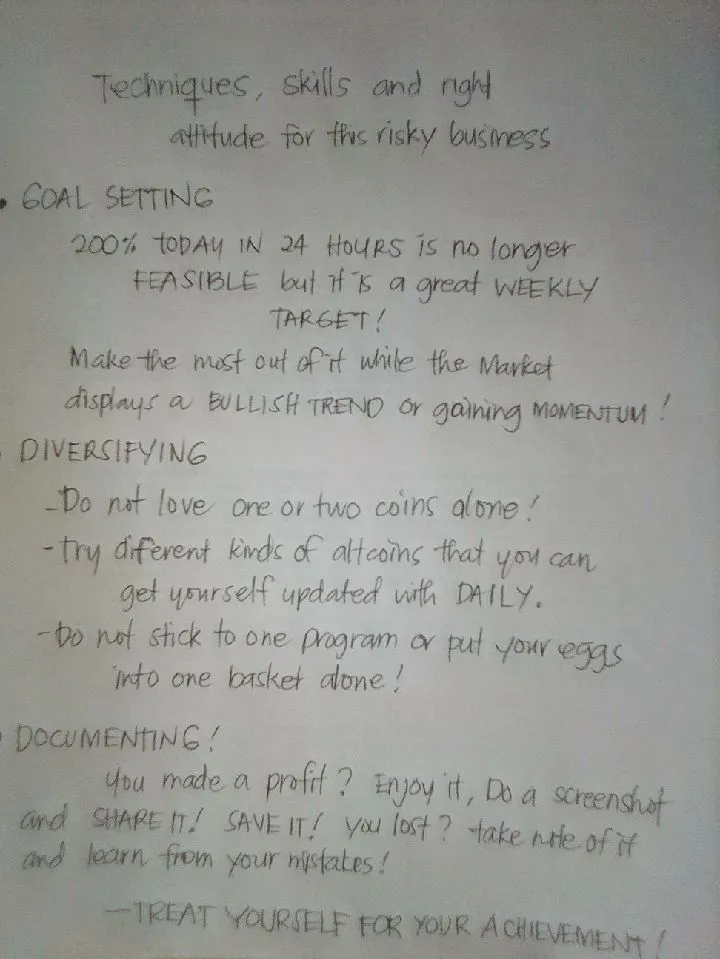 Techniques, skills and right
attitude for this risky business
• GOAL SETTING
200% TODAY IN 24 HOURS is no longer
FEASIBLE but it is a great WEEKLY
TARGET!
Make the most out of it while the Market
displays a BULLISH TREND or gaining MOMENTUM!
• DIVERSIFYING
- Do not love one or two coins alone!
- Try diferent kinds of altcoins that you can
get yourself updated with DAILY.
- Do not stick to one program or put your eggs
into one basket alone!
• DOCUMENTING!
You made a profit? Enjoy it, Do a screenshot
and SHARE IT! SAVE IT! you lost? take note of it
and learn from your mistakes!
— TREAT YOURSELF FOR YOUR ACHIEVEMENT!